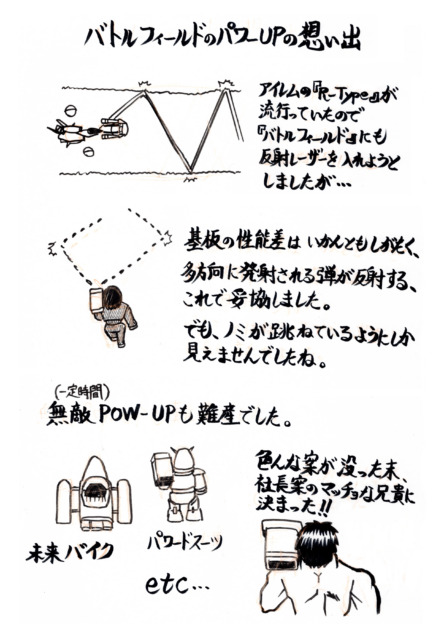 バトルフィールドのパワーUPの想い出
アイレムの『R-Type』が
流行っていたので
『バトルフィールド』にも
反射レーザーを入れようと
しましたが…
基板の性能差はいかんともしがたく、
多方向に発射される弾が反射する、
これで妥協しました。
でも、ノミが跳ねているようにしか
見えませんでしたね。
(一定時間)
無敵POW-UPも難産でした。
色んな案が没った末、
社長案のマッチョな兄貴に
決まった!!
未来バイク
パワードスーツ
etc…